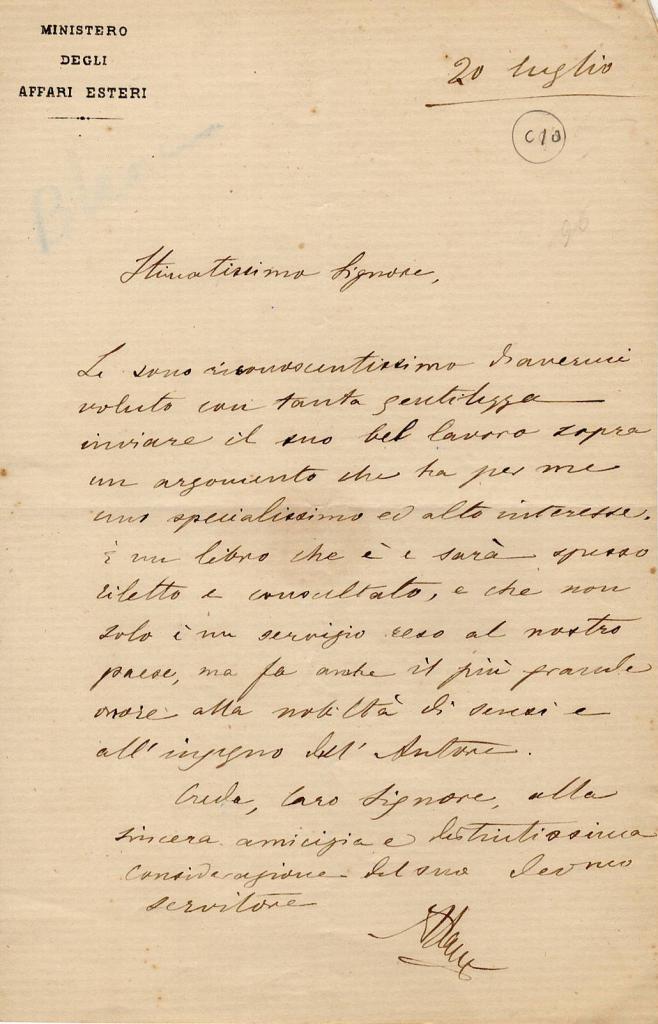 MINISTERO
DEGLI
AFFARI ESTERI
20 luglio
C10
96
Stimatissimo Signore,
Le sono riconoscentissimo d'avermi
voluto con tanta gentilezza
inviare il suo bel lavoro sopra
un argomento che ha per me
uno specialissimo ed alto interesse.
È un libro che è e sarà spesso
riletto e consultato, e che non
solo è un servigio reso al nostro
paese, ma fa anche il più grande
onore alla nobiltà di sensi e
all'ingegno dell'Autore.
Creda, caro Signore, alla
sincera amicizia e distintissima
considerazione del suo devmo
servitore